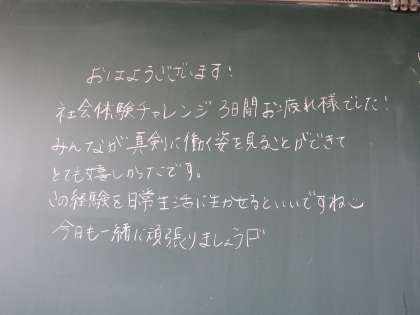 おはようございます!
社会体験チャレンジ3日間お疲れ様でした!
みんなが真剣に働く姿を見ることができて
とても嬉しかったです。
この経験を日常生活に生かせるといいですね
今日も一緒に頑張りましょう